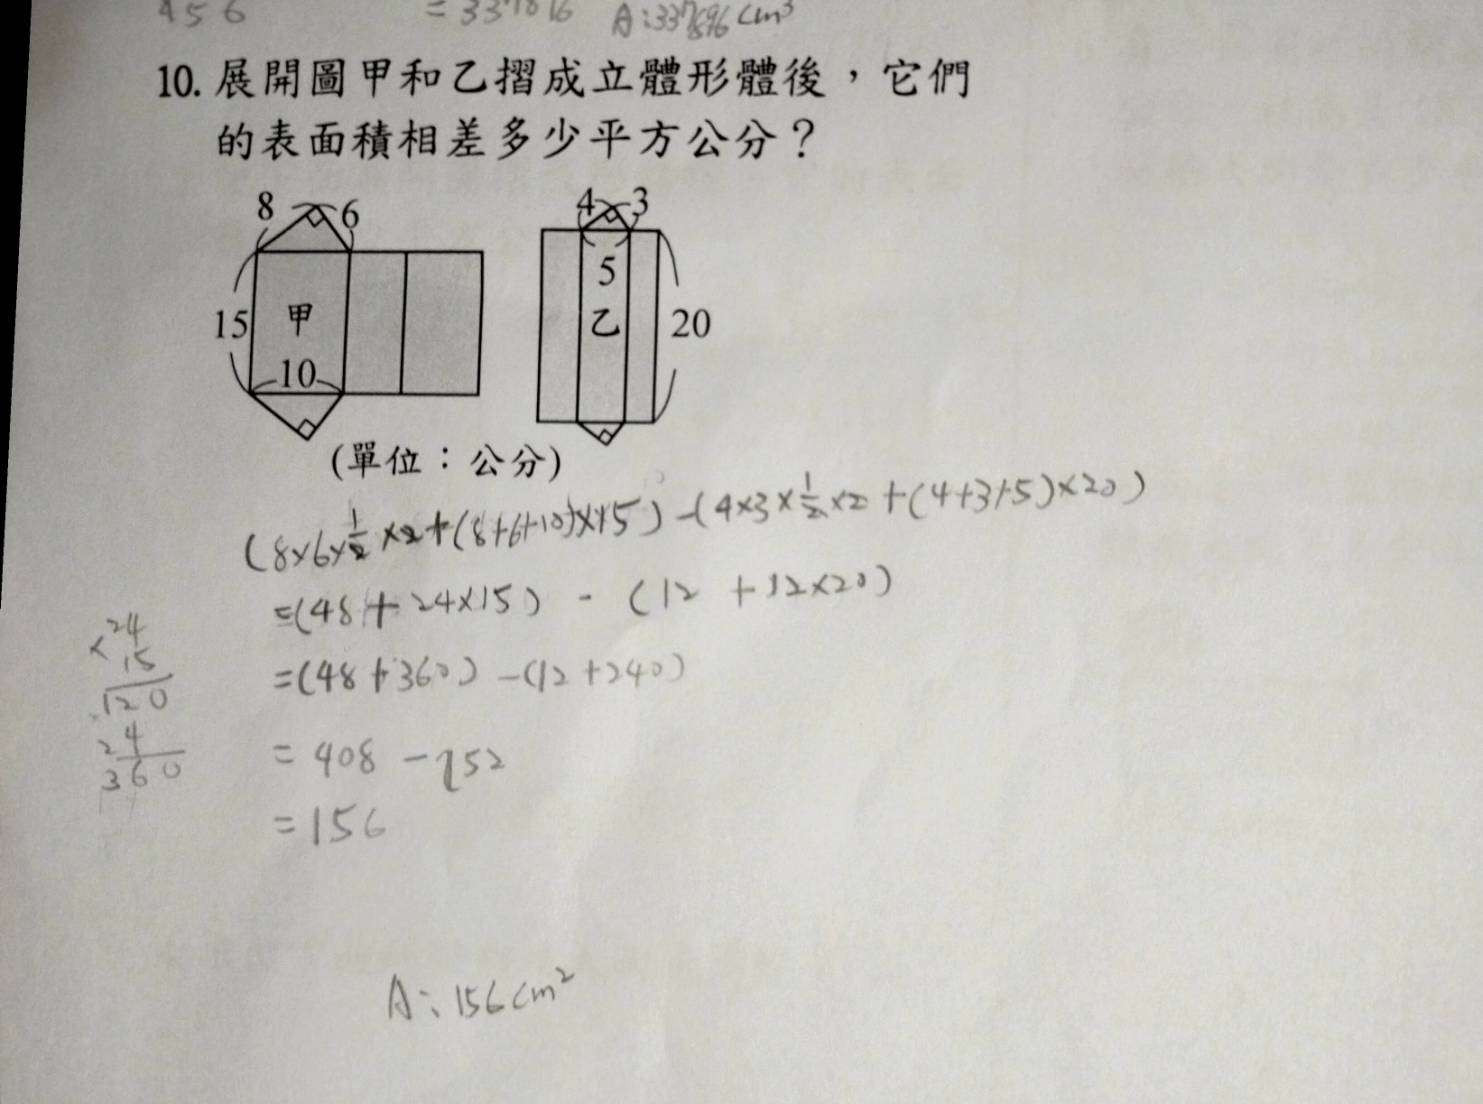 456 = 337816 A:337896cm³
10. 展開圖甲和乙摺成立體形體後，它們
的表面積相差多少平方公分？
8 6 4 3
5
15 甲 乙 20
10
(單位：公分)
(8×6×1/2×2+(8+6+10)×15)-(4×3×1/2×2+(4+3+5)×20)
=(48+24×15) - (12 +12×20)
=(48+360)-(12+240)
= 408 -252
=156
24
×15
120
24
360
A:156cm²